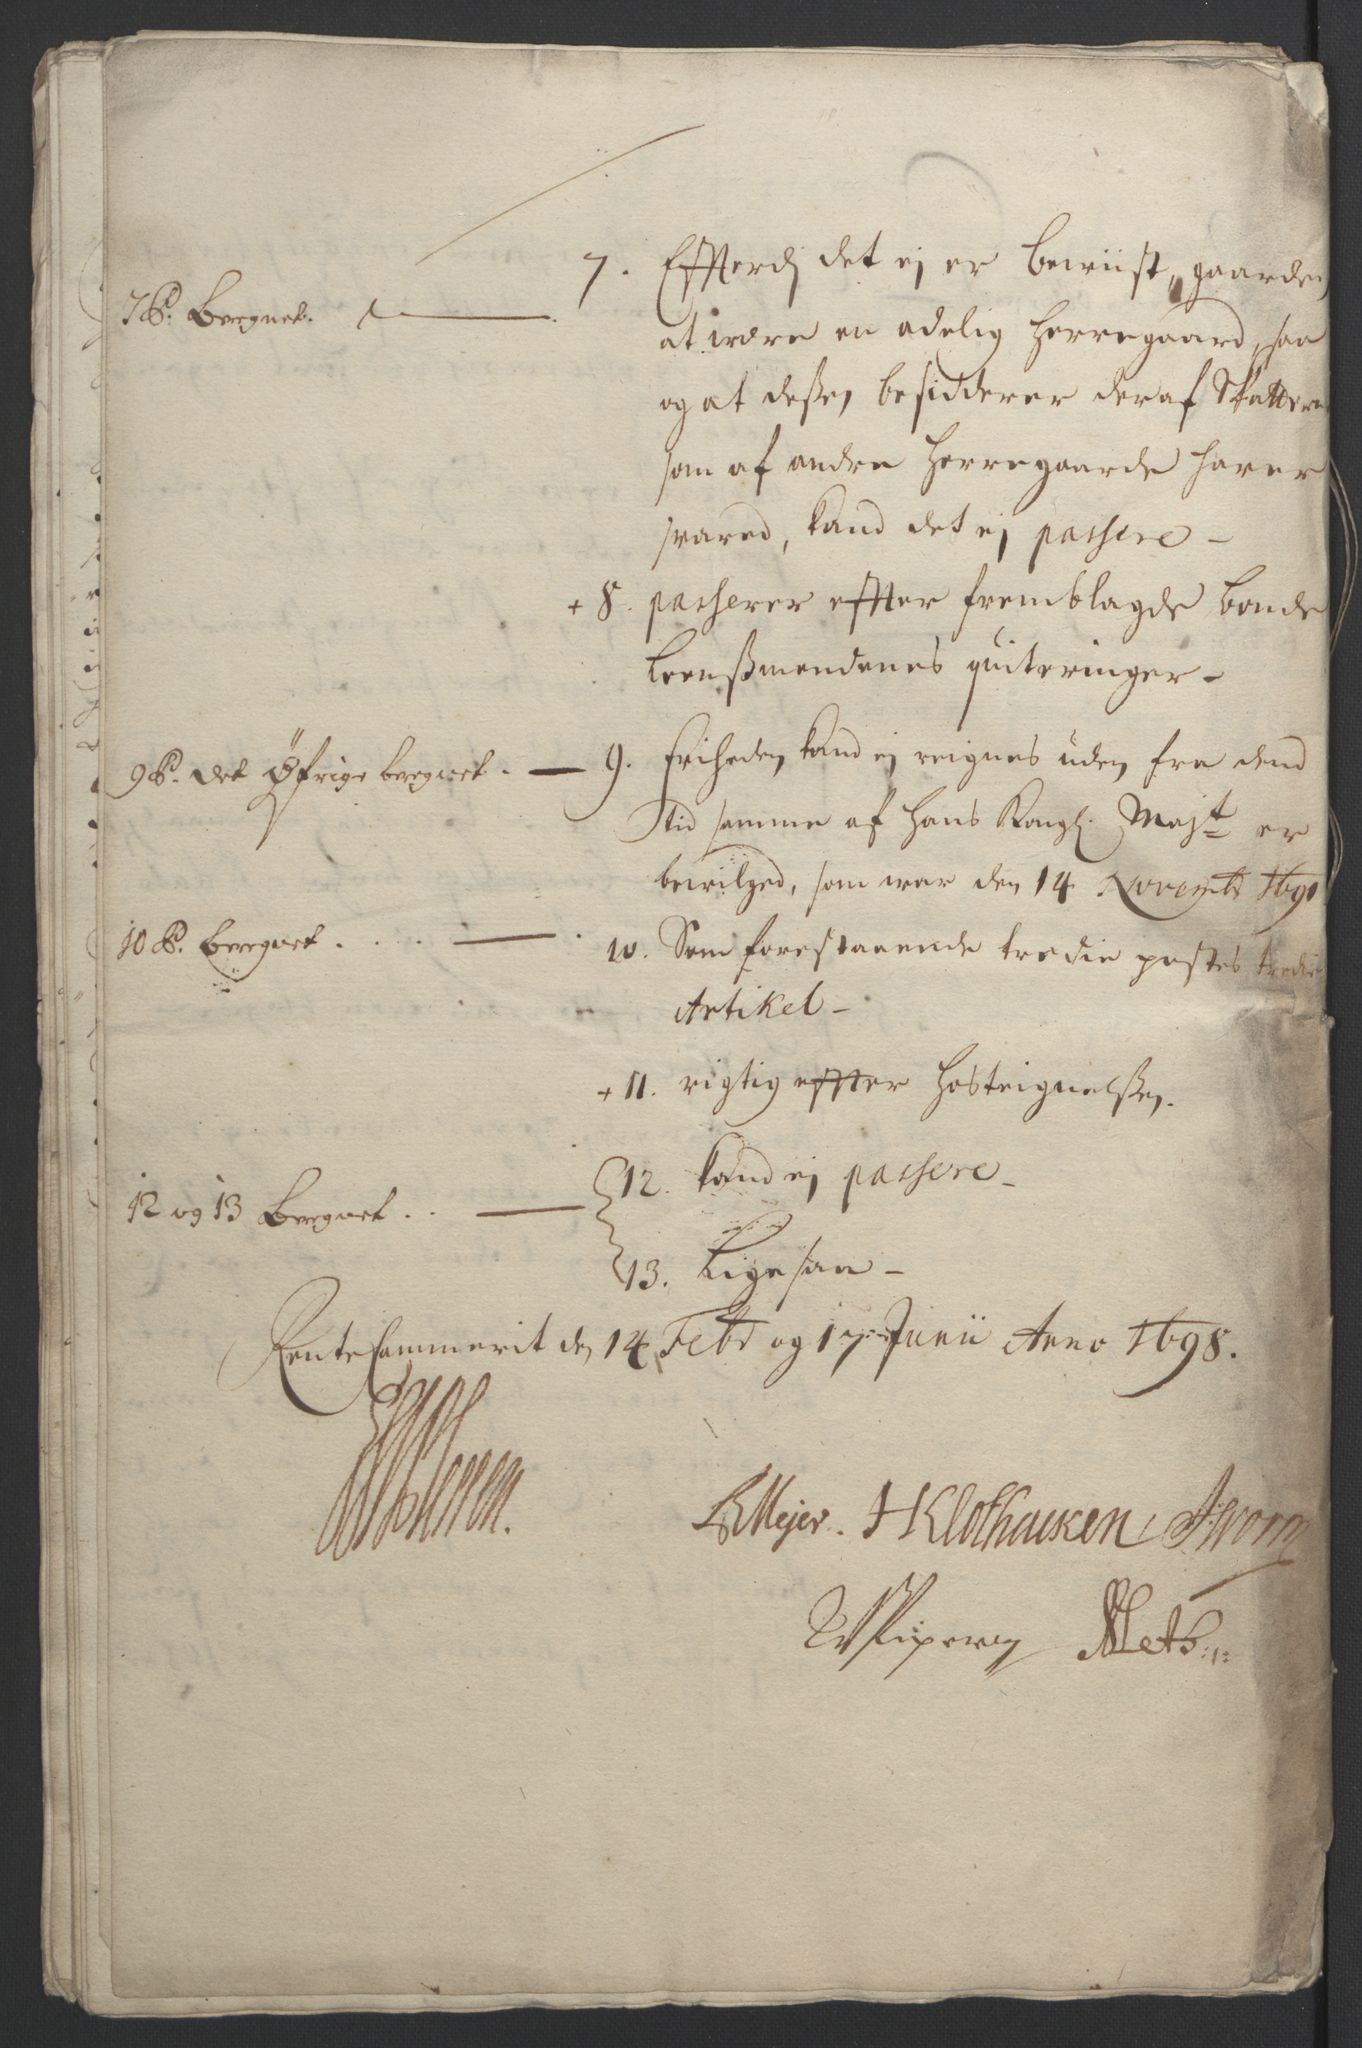 7 P. Beregnet.
7. Effterdj det ej er beviist, gaarden
at være en adelig Herregaard, saa
og at dessen besidderer deraf Skatterne
som af andre Herregaarde haver
svared, kand det ej passere -
+ 8. passerer effter fremblagde bonde
Leenssmendenes quiteringer -
9 P. det Øfrige beregnet. -
9. Friheden kand ej reignes uden fra dend
Tid samme af Hans Kongl. Majt. er
bevilged, som war den 14 Novembr 1691
10 P. beregnet . . . .
10. Som forestaaende tredie postes tredie
Artikel -
+ 11. rigtig effter Hosteignelssen.
12 og 13 Beregnet . .
12. kand ej passere -
13. Ligesaa -
RenteCammerit den 14 Febr og 17 Junii Anno 1698.
Meyer. HKlothausen Worm